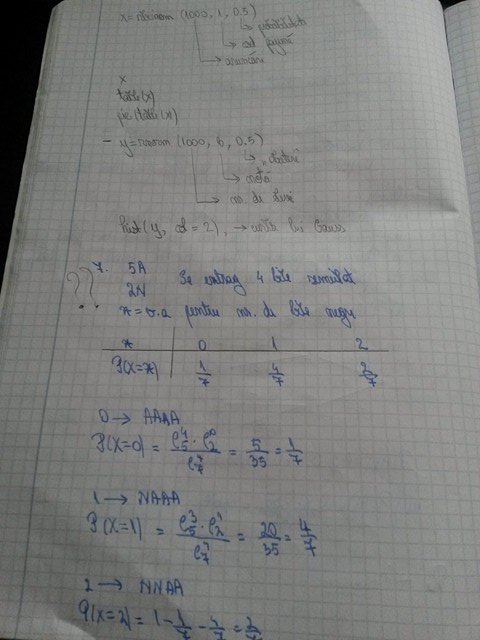 x=rbinom (1000, 1, 0.5)
→ probabilitatea
→ aruncări
x
table(x)
pie(table(x))
- y=rnorm (1000, 6, 0.5)
→ notă
→ nr. de
hist(y, col=2), → curba lui Gauss
?? 7. 5A Se extrag 4 bile simultan
2N
x=v.a pentru nr. de bile negre
x 0 1 2
P(X=x) 1/7 4/7 2/7
0 → AAAA
P(X=0) = C₅⁴·C₂⁰/C₇⁴ = 5/35 = 1/7
1 → NAAA
P(X=1) = C₅³·C₂¹/C₇⁴ = 20/35 = 4/7
2 → NNAA
P(X=2) = 1 - 1/7 - 4/7 = 2/7